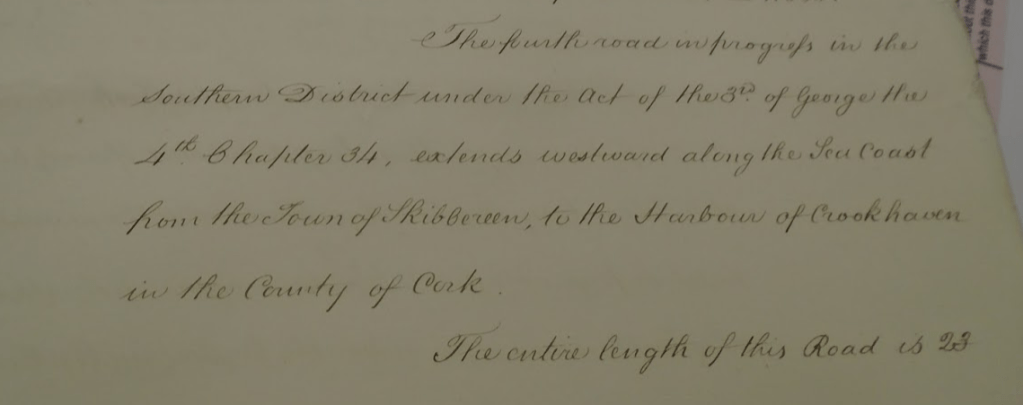 The fourth road in progress in the
Southern District under the Act of the 3rd. of George the
4th Chapter 34, extends westward along the Sea Coast
from the Town of Skibbereen, to the Harbour of Crookhaven
in the County of Cork.
The entire length of this Road is 23
which this